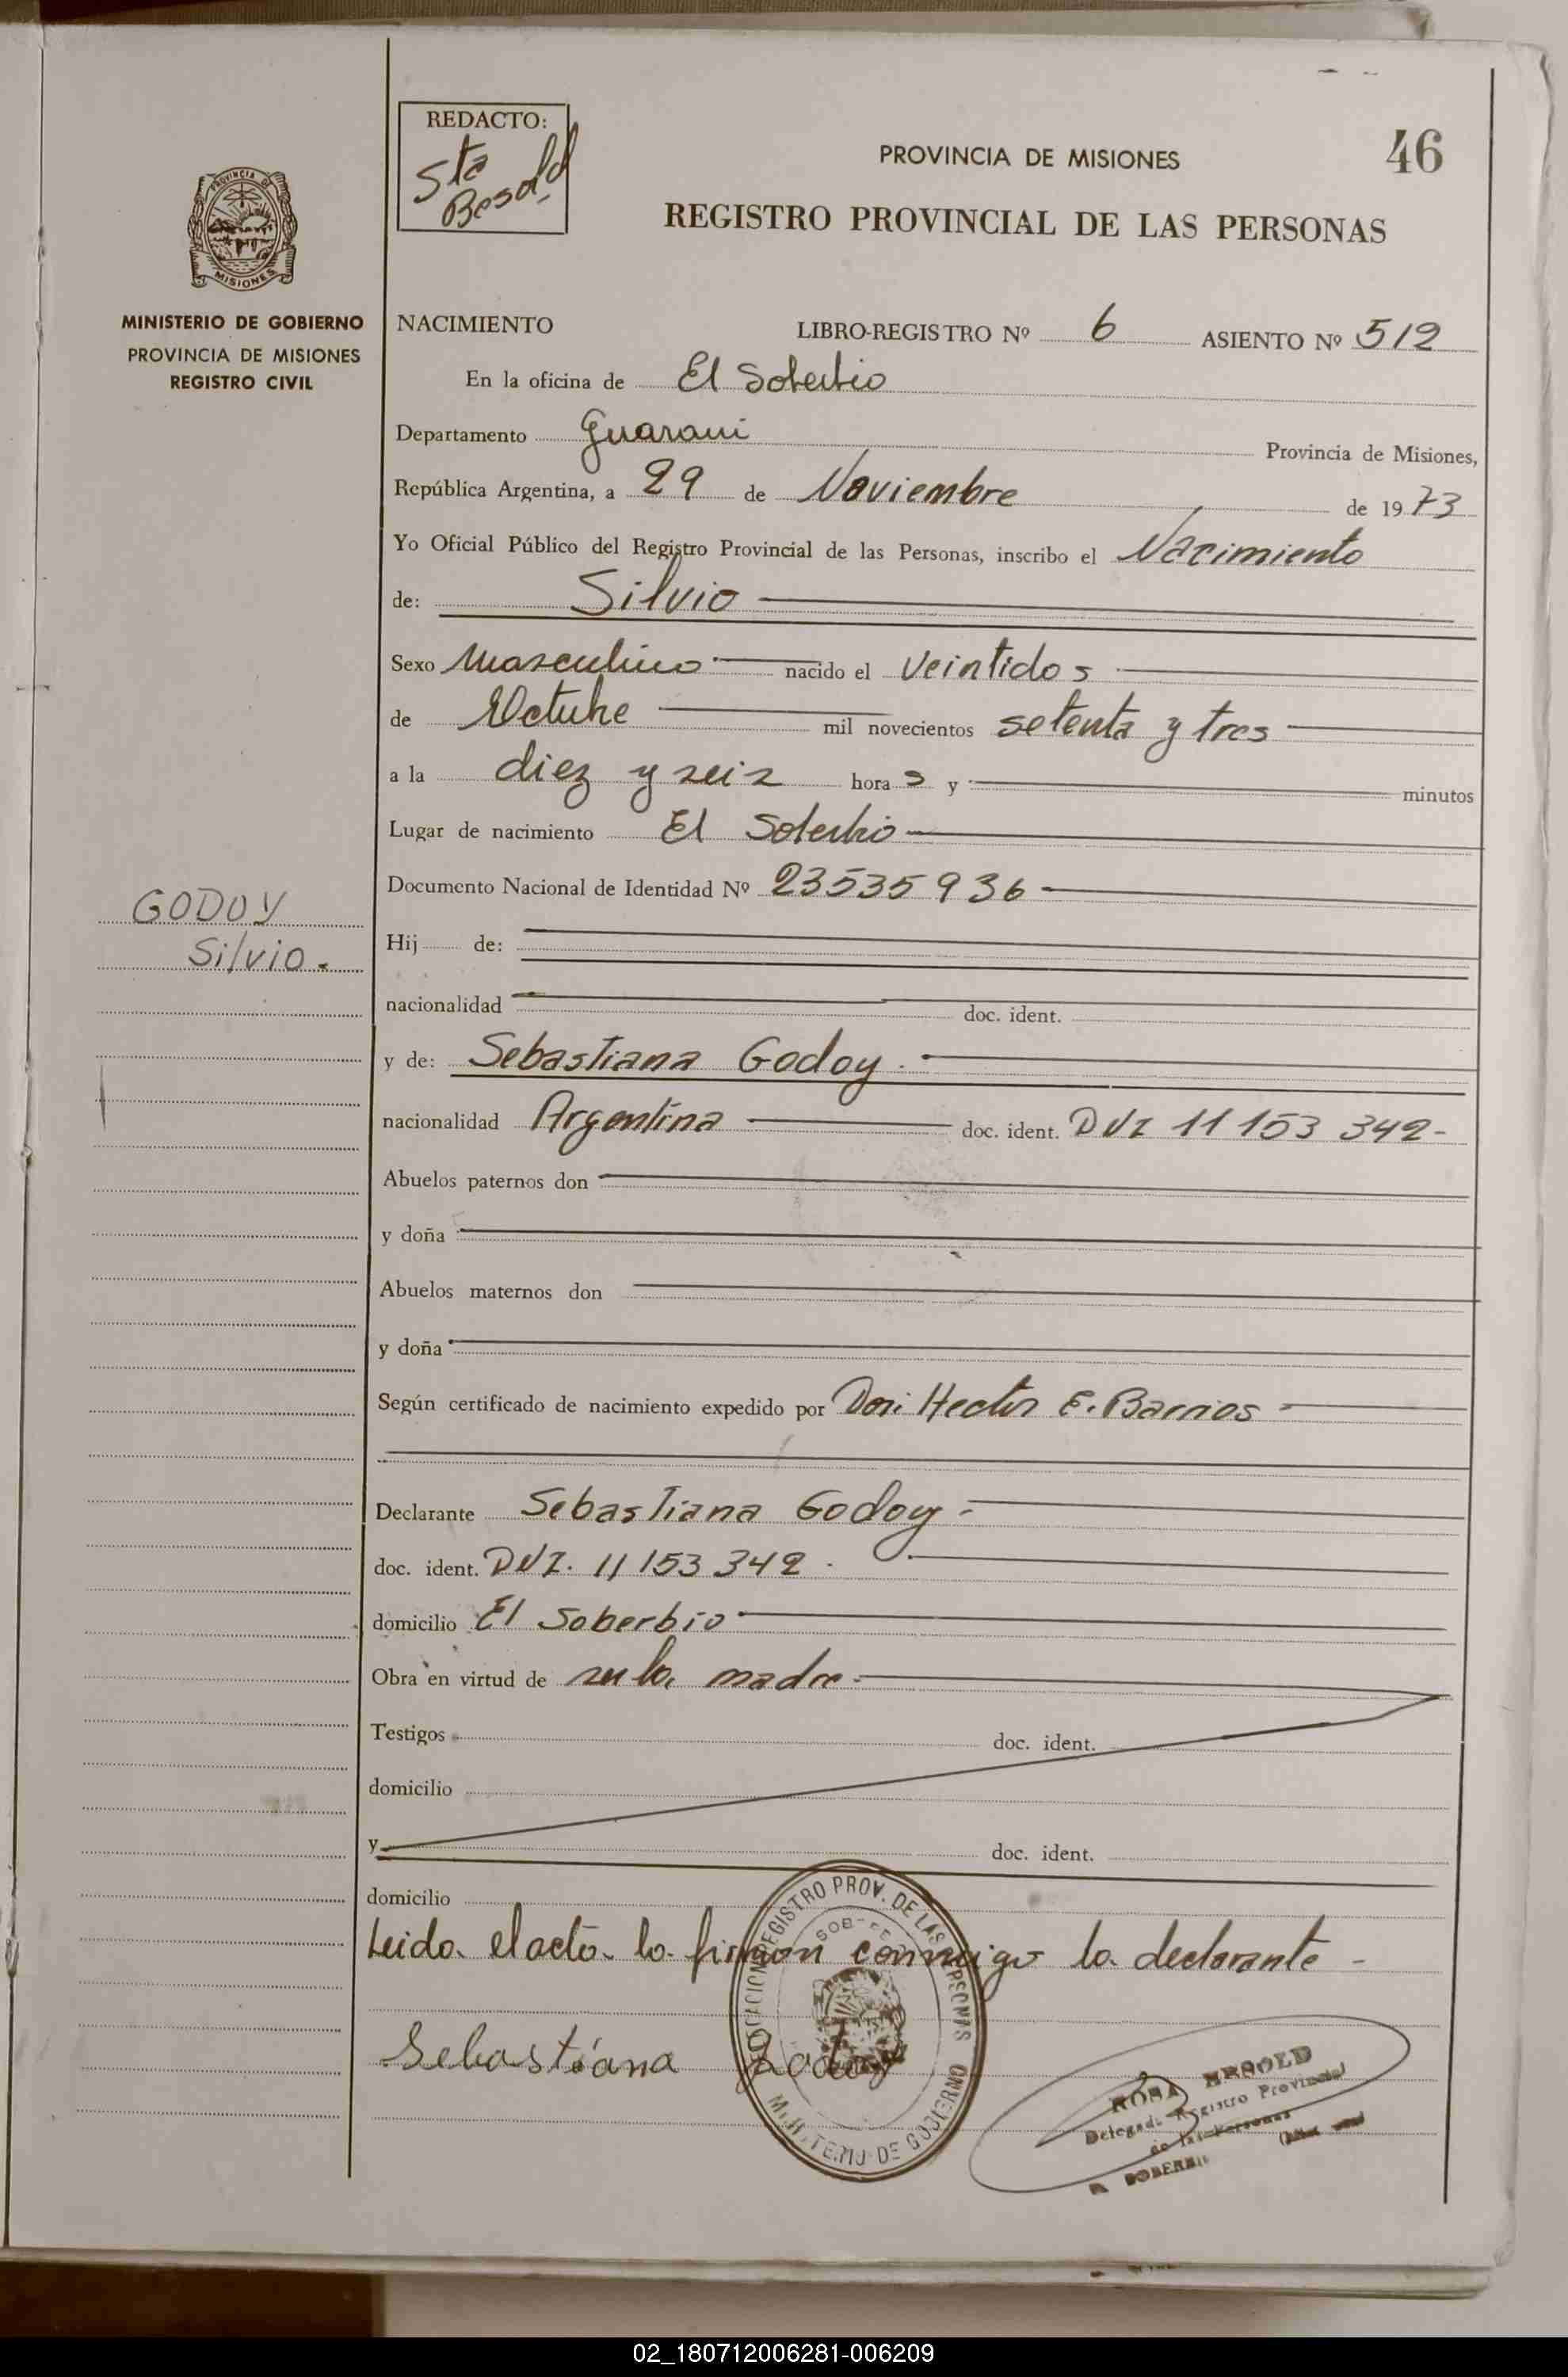 REDACTO:
Sta
Besold
PROVINCIA DE MISIONES
46
REGISTRO PROVINCIAL DE LAS PERSONAS
PROVINCIA DE
MISIONES
MINISTERIO DE GOBIERNO
PROVINCIA DE MISIONES
REGISTRO CIVIL
NACIMIENTO LIBRO-REGISTRO Nº 6 ASIENTO Nº 512
En la oficina de El Soberbio
Departamento Guarani Provincia de Misiones,
República Argentina, a 29 de Noviembre de 1973
Yo Oficial Público del Registro Provincial de las Personas, inscribo el Nacimiento
de: Silvio
Sexo Masculino nacido el veintidos
de Octubre mil novecientos setenta y tres
a la diez y seis hora s y minutos
Lugar de nacimiento El Soberbio
Documento Nacional de Identidad Nº 23535936
GODOY
Silvio.
Hij de:
nacionalidad doc. ident.
y de: Sebastiana Godoy.
nacionalidad Argentina doc. ident. DNI 11 153 342-
Abuelos paternos don
y doña
Abuelos maternos don
y doña
Según certificado de nacimiento expedido por Hector E. Barrios
Declarante Sebastiana Godoy
doc. ident. DNI. 11 153 342.
domicilio El Soberbio
Obra en virtud de ser la madre
Testigos doc. ident.
domicilio
y doc. ident.
domicilio
Leida el acta la firman conmigo la declarante -
Sebastiana Godoy
REGISTRO PROV. DE LAS PERSONAS
DE GOBIERNO
ROSA BESOLD
Delegada Registro Provincial
de las Personas
SOBERBIO
02_180712006281-006209